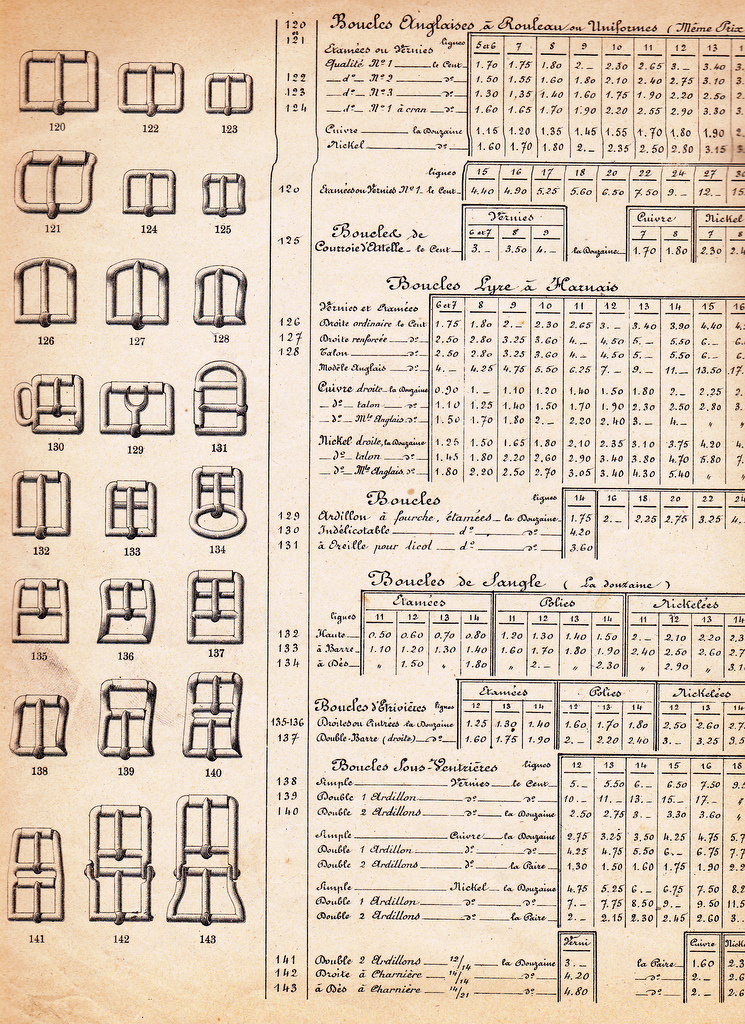 120 Boucles Anglaises à Rouleau ou Uniformes ( Même Prix
et
121 lignes 5 a 6 7 8 9 10 11 12 13
Étamées ou Vernies
Qualité Nº1 le Cent 1.70 1.75 1.80 2._ 2.30 2.65 3._ 3.40
122 _dº_ Nº2 _dº_ 1.50 1.55 1.60 1.80 2.10 2.40 2.75 3.10
123 _dº_ Nº3 _dº_ 1.30 1,35 1.40 1.60 1.75 1.90 2.20 2.50
124 _dº_ Nº1 à cran _dº_ 1.60 1.65 1.70 1.90 2.20 2.55 2.90 3.30
Cuivre la Douzaine 1.15 1.20 1.35 1.45 1.55 1.70 1.80 1.90
Nickel _dº_ 1.60 1.70 1.80 2._ 2.35 2.50 2.80 3.15
lignes 15 16 17 18 20 22 24 27
120 Étamées ou Vernies Nº1 le Cent 4.40 4.90 5.25 5.60 6.50 7.50 9._ 12._
Vernies Cuivre Nickel
125 Boucles de 6 et 7 8 9 7 8 7 8
Courroie d'Attelle _ le Cent 3._ 3.50 4._ la Douzaine 1.70 1.80 2.30
Boucles Lyre à Harnais
Vernies et Étamées 6 et 7 8 9 10 11 12 13 14 15 16
126 Droite ordinaire le Cent 1.75 1.80 2._ 2.30 2.65 3._ 3.40 3.90 4.40
127 Droite renforcée _dº_ 2.50 2.80 3.25 3.60 4._ 4.50 5._ 5.50 6._
128 Talon _dº_ 2.50 2.80 3.25 3.60 4._ 4.50 5._ 5.50 6._
Modèle Anglais _dº_ 4._ 4.25 4.75 5.50 6.25 7._ 9._ 11._ 13.50
Cuivre droite la Douzaine 0.90 1._ 1.10 1.20 1.40 1.50 1.80 2._ 2.25
_dº_ talon _dº_ 1.10 1.25 1.40 1.50 1.70 1.90 2.30 2.50 2.80
_dº_ Mle Anglais dº 1.50 1.70 1.80 2._ 2.20 2.40 3._ 4._ " "
Nickel droite, la Douzaine 1.25 1.50 1.65 1.80 2.10 2.35 3.10 3.75 4.20
_dº_ talon _dº_ 1.45 1.80 2.20 2.60 2.90 3.40 3.80 4.70 5.80
_dº_ Mle Anglais dº 1.80 2.20 2.50 2.70 3.05 3.40 4.30 5.40 " "
Boucles lignes 14 16 18 20 22 24
129 Ardillon à fourche, étamées _ la Douzaine 1.75 2._ 2.25 2.75 3.25
130 Indélicotable _dº_ _dº_ 4.20
131 à Oreille pour licol _dº_ _dº_ 3.60
Boucles de Sangle ( La douzaine )
Étamées Polies Nickelées
lignes 11 12 13 14 11 12 13 14 11 12 13 14
132 Haute 0.50 0.60 0.70 0.80 1.20 1.30 1.40 1.50 2._ 2.10 2.20
133 à Barre 1.10 1.20 1.30 1.40 1.60 1.70 1.80 1.90 2.40 2.50 2.60
134 à Dés " 1.50 " 1.80 " 2._ " 2.30 " 2.90 "
Étamées Polies Nickelées
Boucles d'Étrivières lignes 12 13 14 12 13 14 12 13 14
135-136 Droites ou Cintrées la Douzaine 1.25 1.30 1.40 1.60 1.70 1.80 2.50 2.60
137 Double-Barre (droite) _dº_ 1.60 1.75 1.90 2._ 2.20 2.40 3._ 3.25
Boucles Sous-Ventrières lignes 12 13 14 15 16 18
138 Simple Vernies le Cent 5._ 5.50 6._ 6.50 7.50
139 Double 1 Ardillon _dº_ _dº_ 10._ 11._ 13._ 15._ 17._ "
140 Double 2 Ardillons _dº_ la Douzaine 2.50 2.75 3._ 3.30 3.60 "
Simple Cuivre la Douzaine 2.75 3.25 3.50 4.25 4.75
Double 1 Ardillon _dº_ _dº_ 4.25 4.75 5.50 6._ 6.75
Double 2 Ardillons _dº_ la Paire 1.30 1.50 1.60 1.75 1.90
Simple Nickel la Douzaine 4.75 5.25 6._ 6.75 7.50
Double 1 Ardillon _dº_ _dº_ 7._ 7.75 8.50 9._ 9.50
Double 2 Ardillons _dº_ la Paire 2._ 2.15 2.30 2.45 2.60
Verni Cuivre
141 Double 2 Ardillons 12/14 la Douzaine 3._ la Paire 1.60
142 Droite à Charnière 14/14 _dº_ 4.20 _dº_ 2._
143 à Dés à Charnière 14/21 _dº_ 4.80 _dº_ 2._
120 122 123
121 124 125
126 127 128
130 129 131
132 133 134
135 136 137
138 139 140
141 142 143